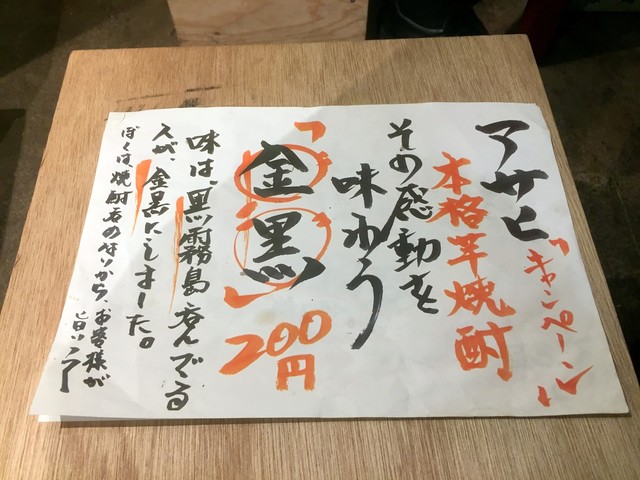 アサヒ「キャンペーン」
本格芋焼酎
その感動を
味わう
「金黒」
200円
味は、黒霧島呑んでる
人が、金黒にしました。
ぼくは、焼酎
から、お客様が
旨いって